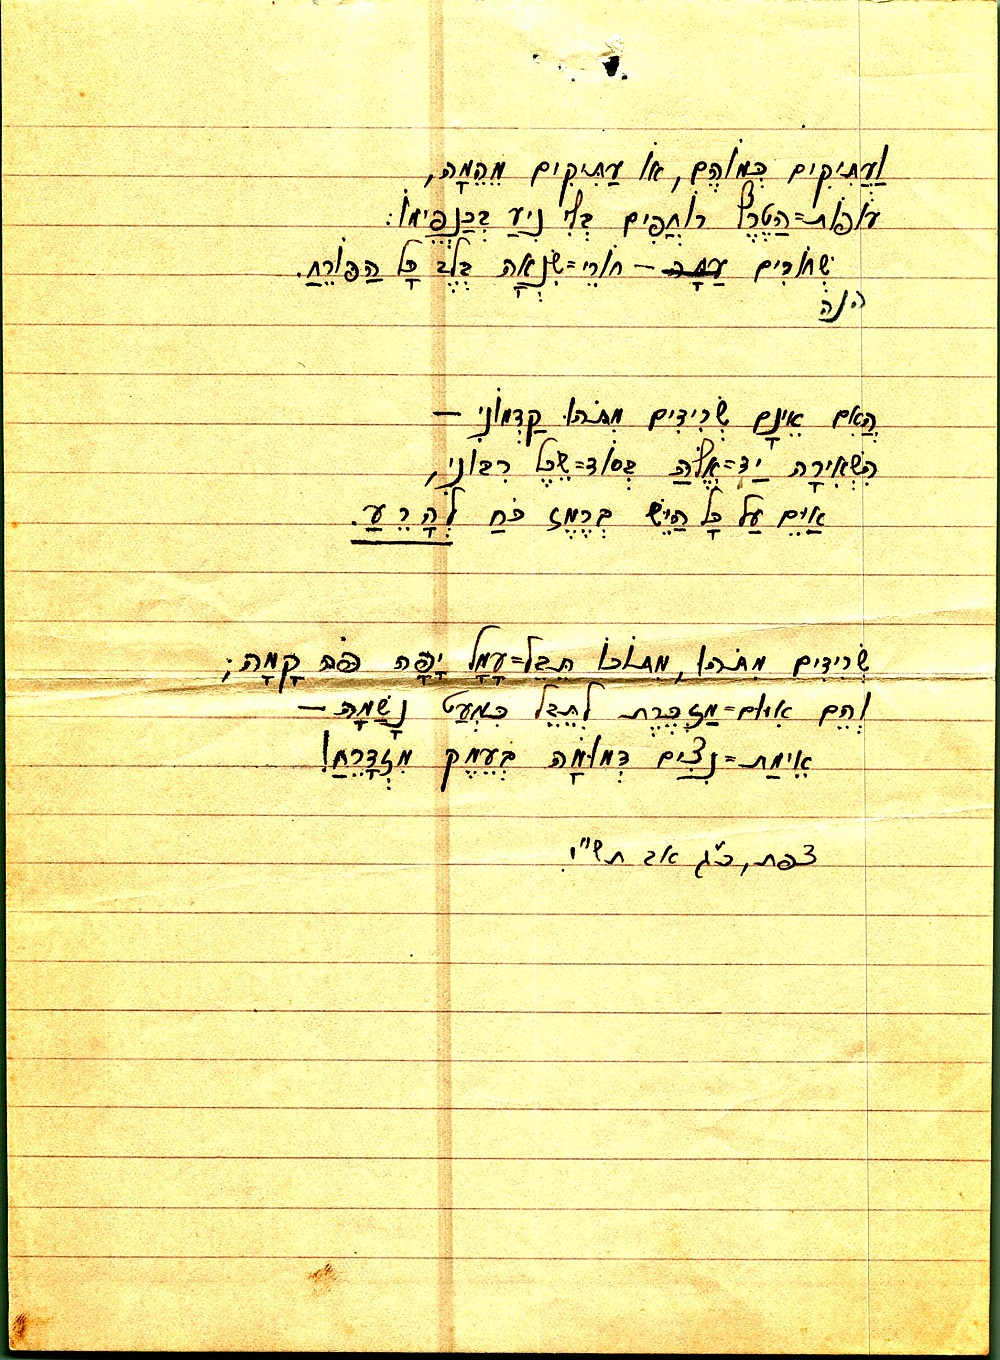 וַעֲתִיקִים כְּמוֹהֶם, אוֹ עַתִּיקִים מֵהֵמָּה,
עוֹפוֹת=הַטֶּרֶף רוֹחֲפִים בְּלִי נִיעַ בְּכַנְפֵימוֹ:
שְׁחוֹרִים עַתָּה – חוֹרֵי=שִׂנְאָה בְּלֵב כָּל הַפּוֹרֵחַ.
הִנֵּה
הַאִם אֵינָם שְׂרִידִים מִתֹּהוּ קַדְמוֹנִי –
הִשְׁאִירָה יַד=אֱלֹהַּ בְּסוֹד=שֵׂכֶל רִבּוֹנִי,
אַיֵּם עַל כָּל הַיֵּשׁ בְּרֶמֶז כֹּחַ לְהָרֵעַ.
שְׂרִידִים מִתֹּהוּ, מִתּוֹכוֹ תֵּבֵל=עָמָל יָפָה פֹּה קָמָה;
וְהֵם אִיּוּם=מַזְכֶּרֶת לְתֵבֵל כִּמְעַט נָשַׁמָּה –
אֵימַת=נִצִּים דְּמוּמָה בְּעֵמֶק מִזְדָּרֵחַ!
צפת, כ"ג אב תשי"ו